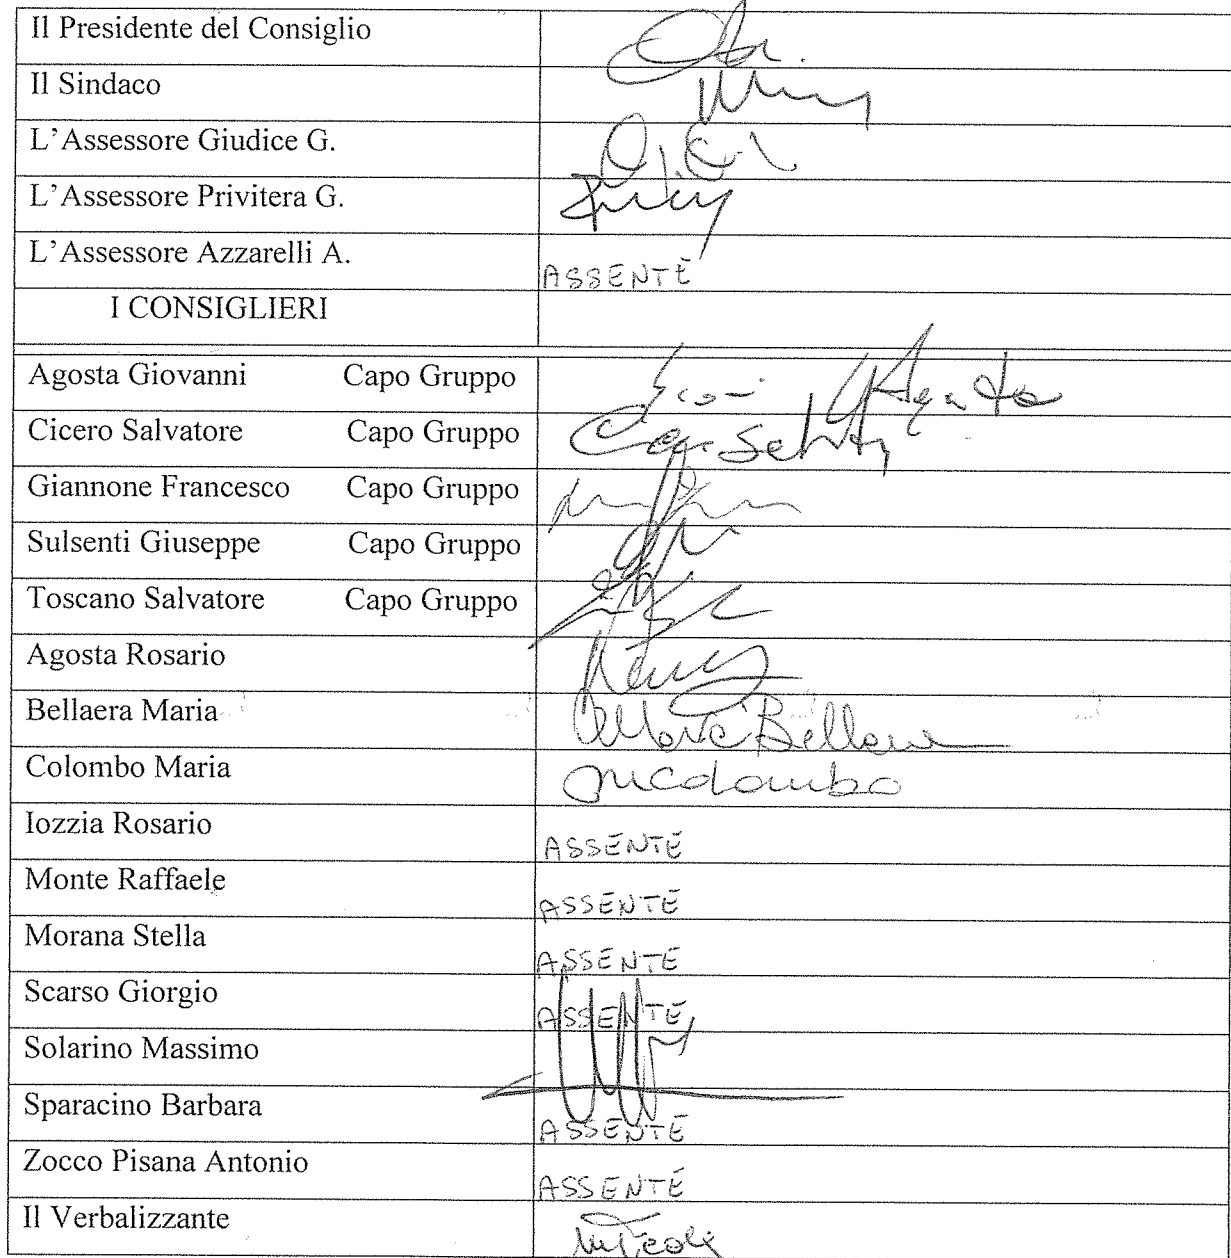 Il Presidente del Consiglio
Il Sindaco
L'Assessore Giudice G.
L'Assessore Privitera G.
L'Assessore Azzarelli A. ASSENTE
I CONSIGLIERI
Agosta Giovanni Capo Gruppo
Cicero Salvatore Capo Gruppo
Giannone Francesco Capo Gruppo
Sulsenti Giuseppe Capo Gruppo
Toscano Salvatore Capo Gruppo
Agosta Rosario
Bellaera Maria
Colombo Maria
Iozzia Rosario ASSENTE
Monte Raffaele ASSENTE
Morana Stella ASSENTE
Scarso Giorgio ASSENTE
Solarino Massimo
Sparacino Barbara ASSENTE
Zocco Pisana Antonio ASSENTE
Il Verbalizzante